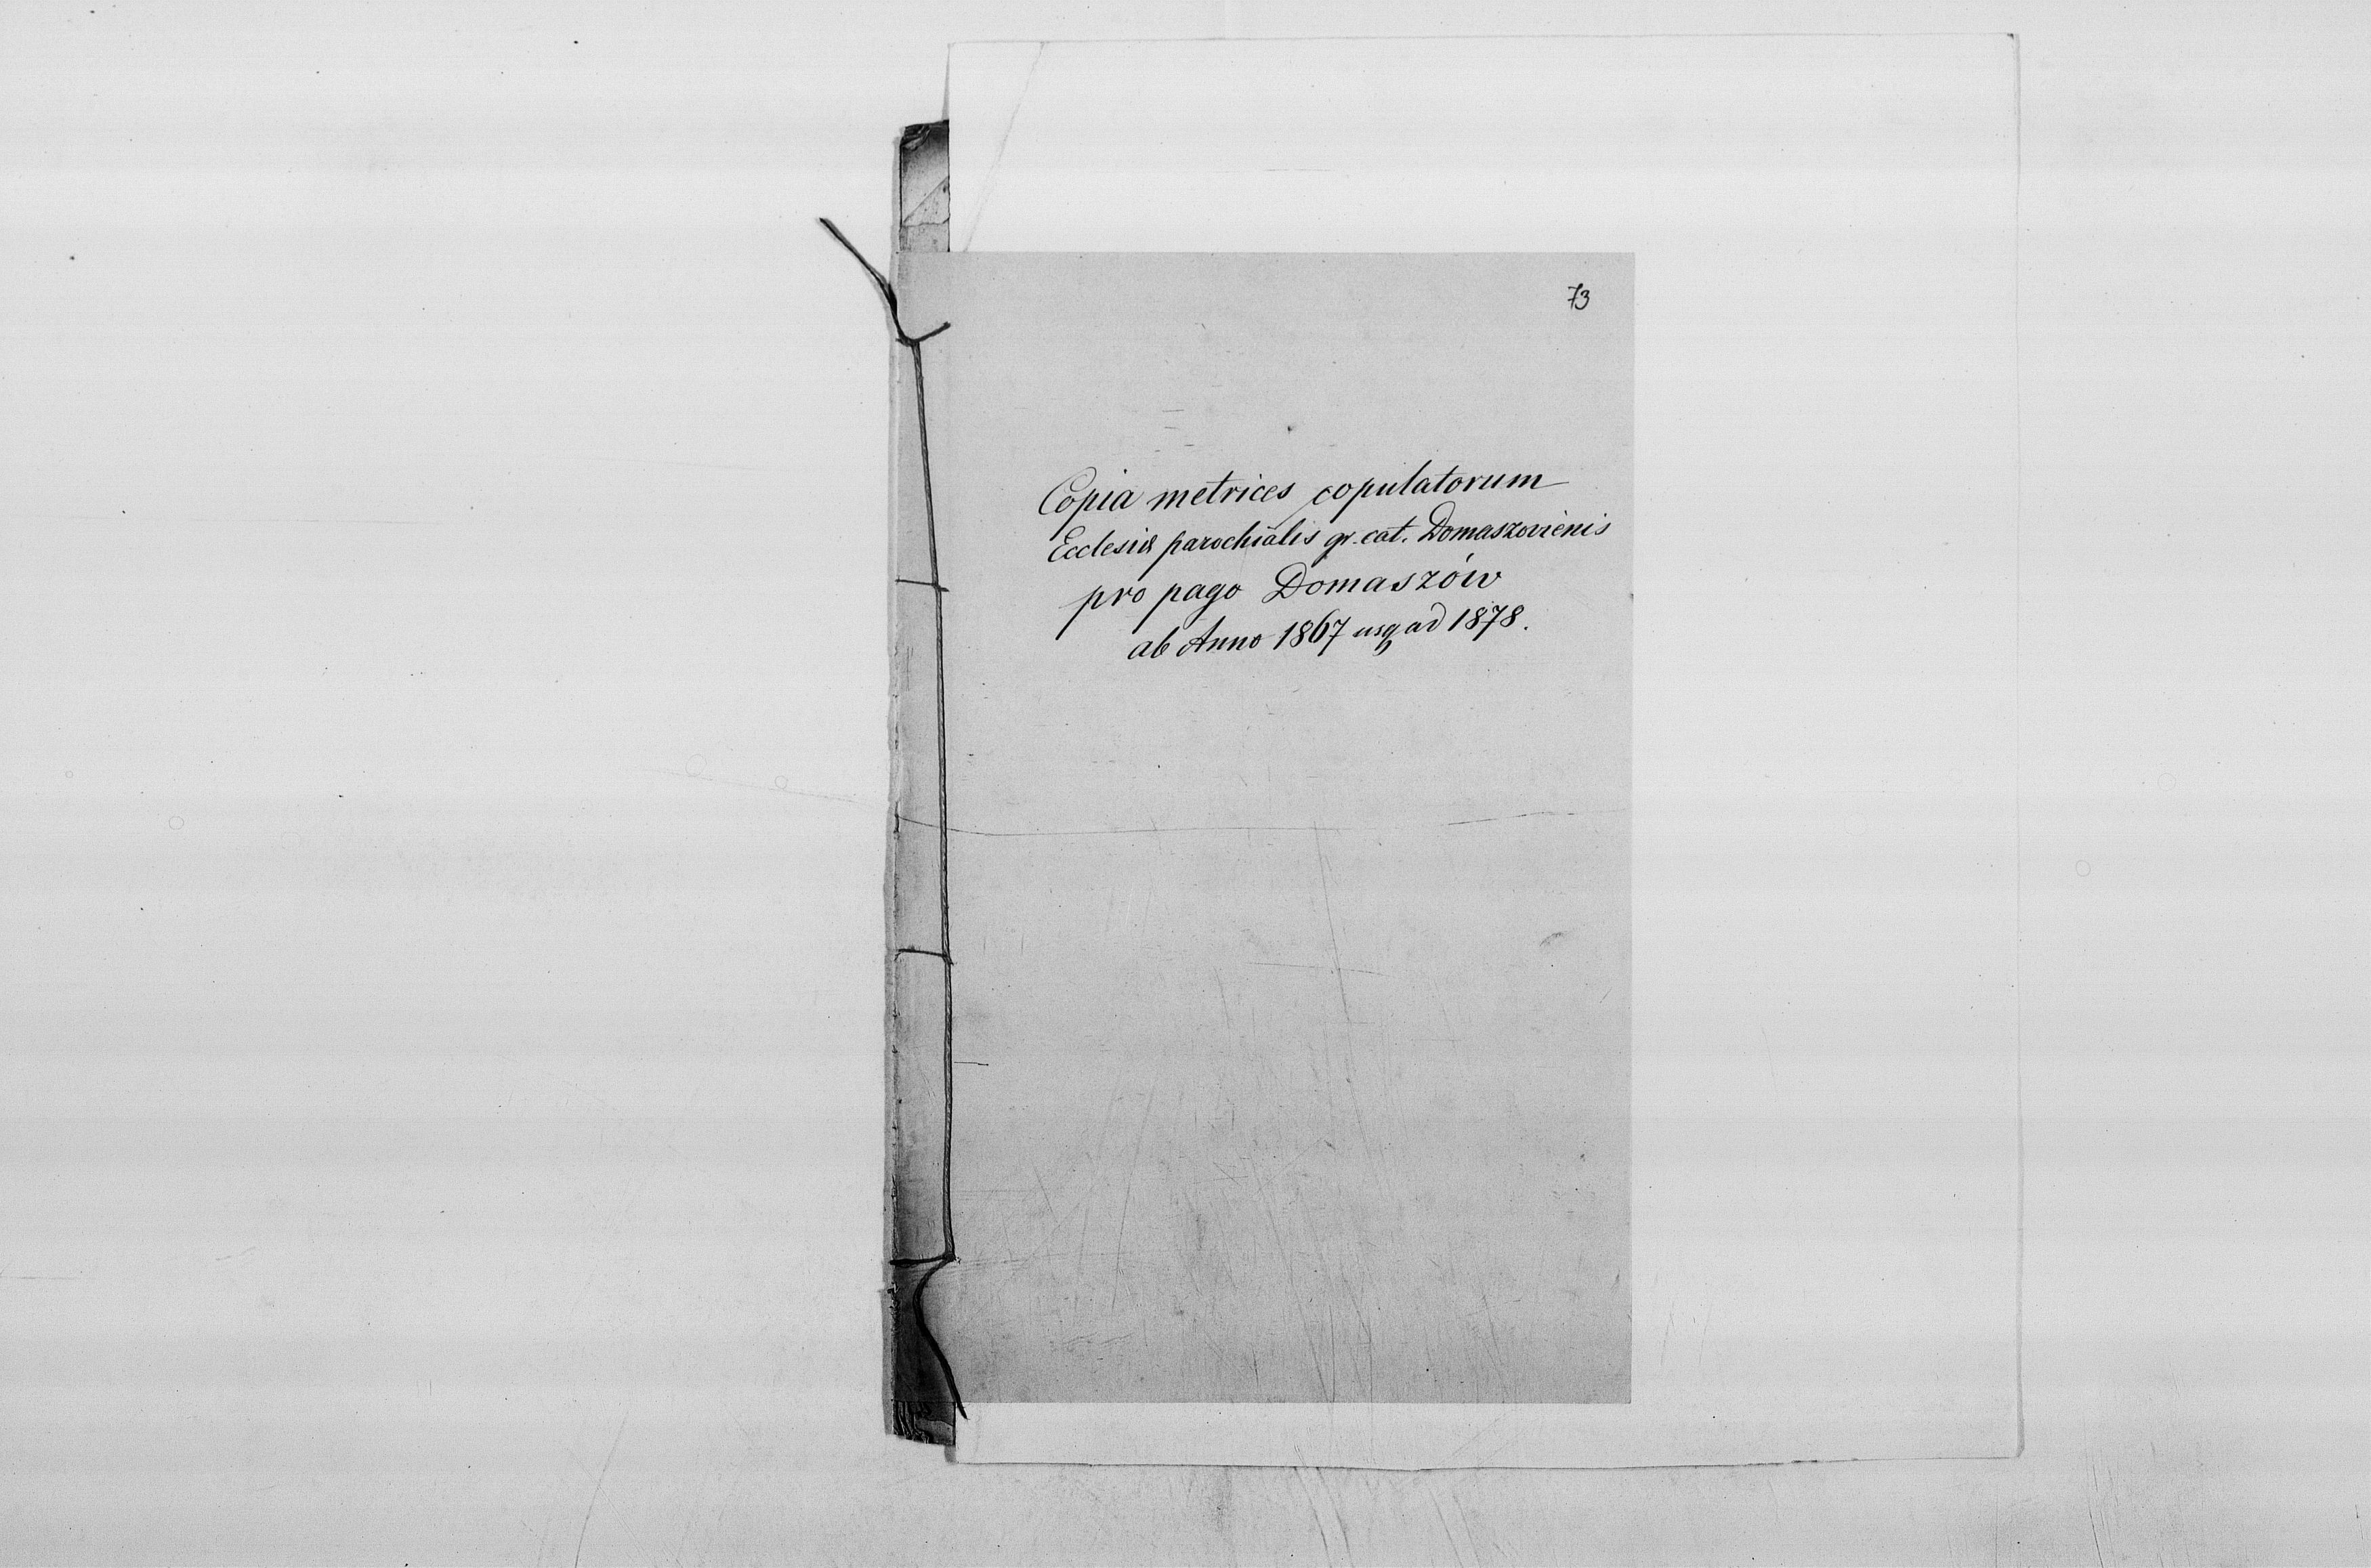 73
Copia metrices copulatorum
Ecclesiæ parochialis gr. cat. Domaszovienis
pro pago Domaszów
ab Anno 1867 usq ad 1878.